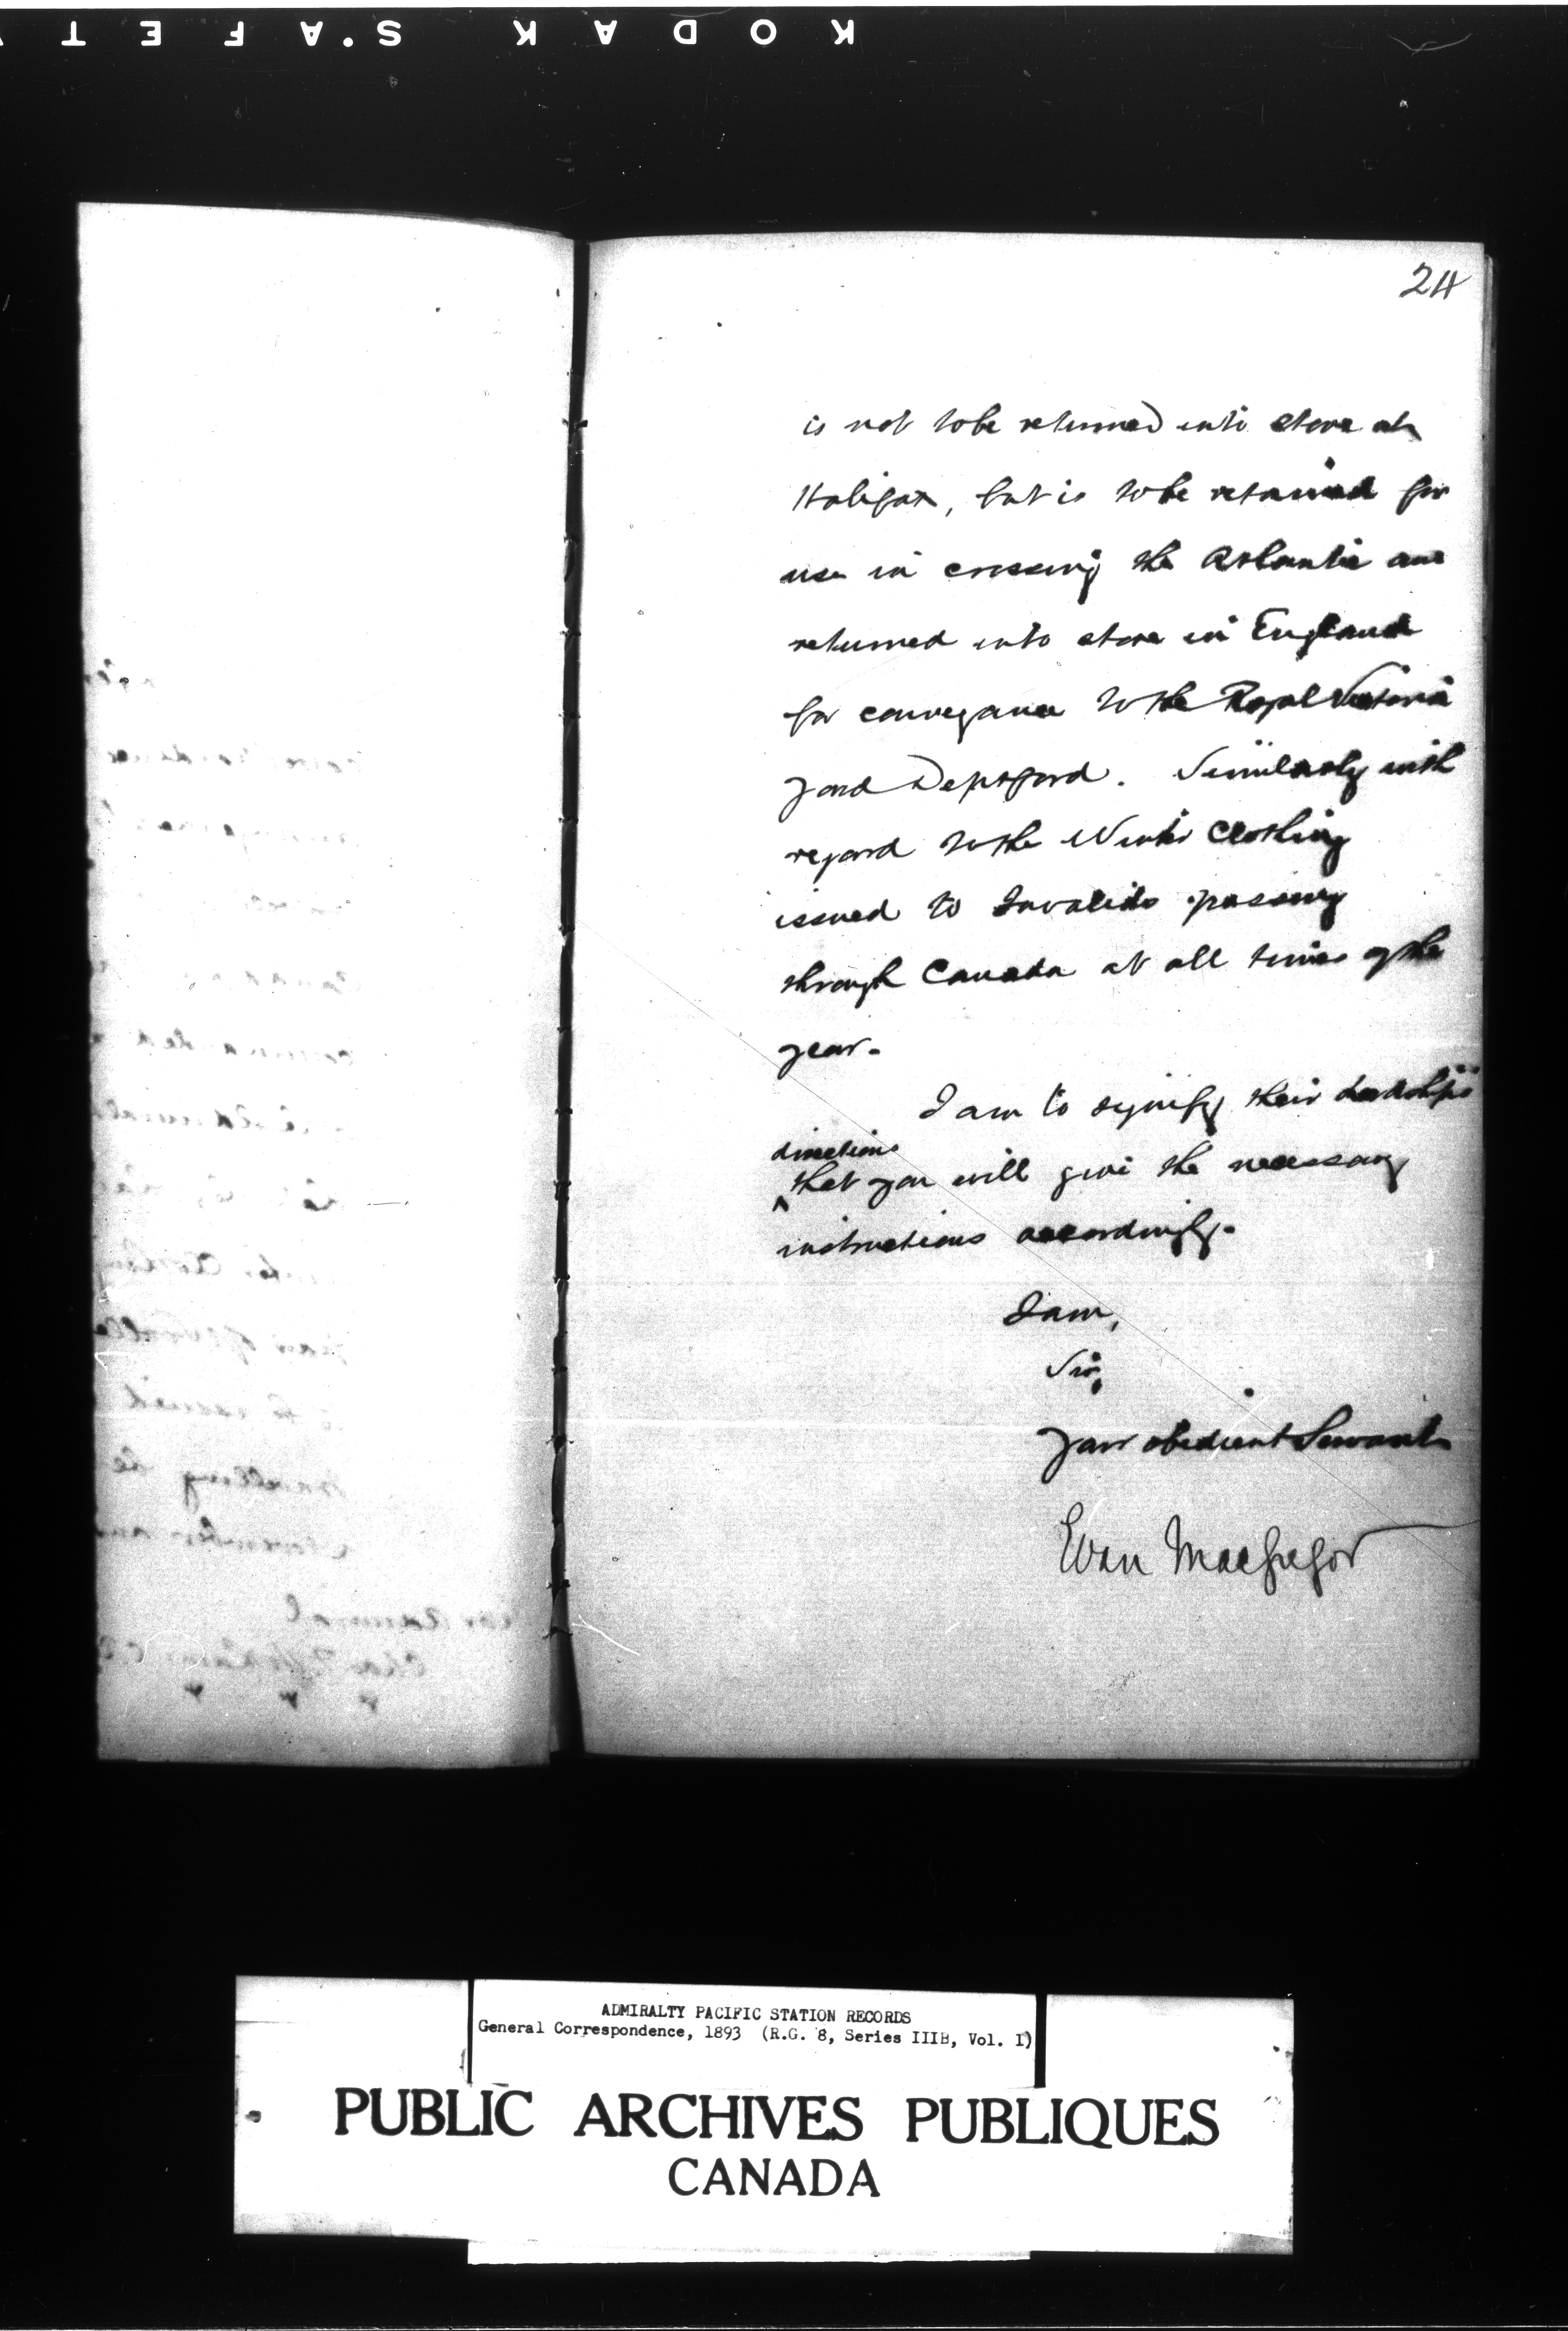 KODAK S'AFETY
24
is not to be returned into store at
Halifax, but is to be retained for
use in crossing the Atlantic and
returned into store in England
for conveyance to the Royal Victoria
Yard Deptford. Similarly with
regard to the Winter Clothing
issued to Invalids passing
through Canada at all times of the
year.
I am to signify their Lordships
directions
that you will give the necessary
instructions accordingly.
I am,
Sir,
Your obedient Servant
Evan MacGregor
ADMIRALTY PACIFIC STATION RECORDS
General Correspondence, 1893 (R.G. 8, Series IIIB, Vol. I)
PUBLIC ARCHIVES PUBLIQUES
CANADA